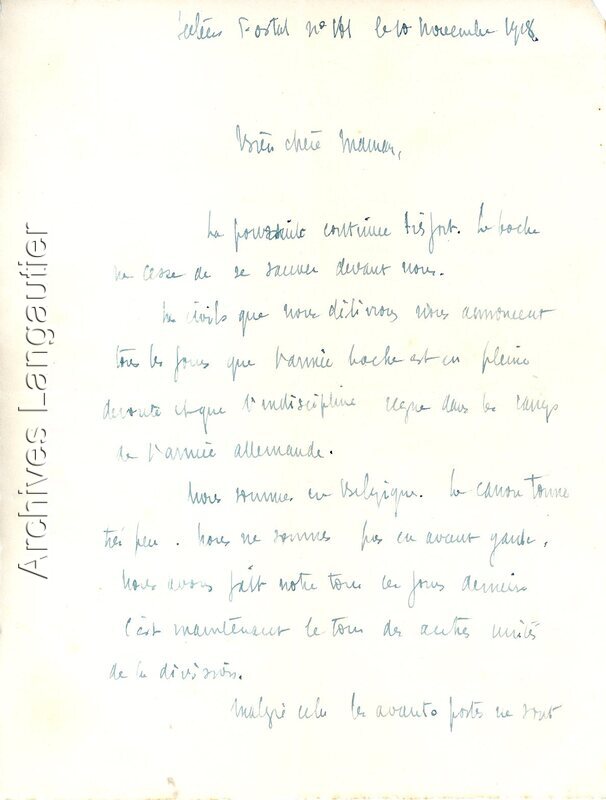 Secteur Postal n° 161 le 10 Novembre 1918.
Bien chère Maman,
La poursuite continue très fort. Le boche
ne cesse de se sauver devant nous.
Les civils que nous délivrons nous annoncent
tous les jours que l'armée boche est en pleine
deroute et que l'indiscipline règne dans les rangs
de l'armée allemande.
Nous sommes en Belgique. Le canon tonne
très peu. Nous ne sommes pas en avant garde.
Nous avons fait notre tour ces jours derniers
C'est maintenant le tour des autres unités
de la division.
Malgré cela les avants postes ne sont
Archives Langautier